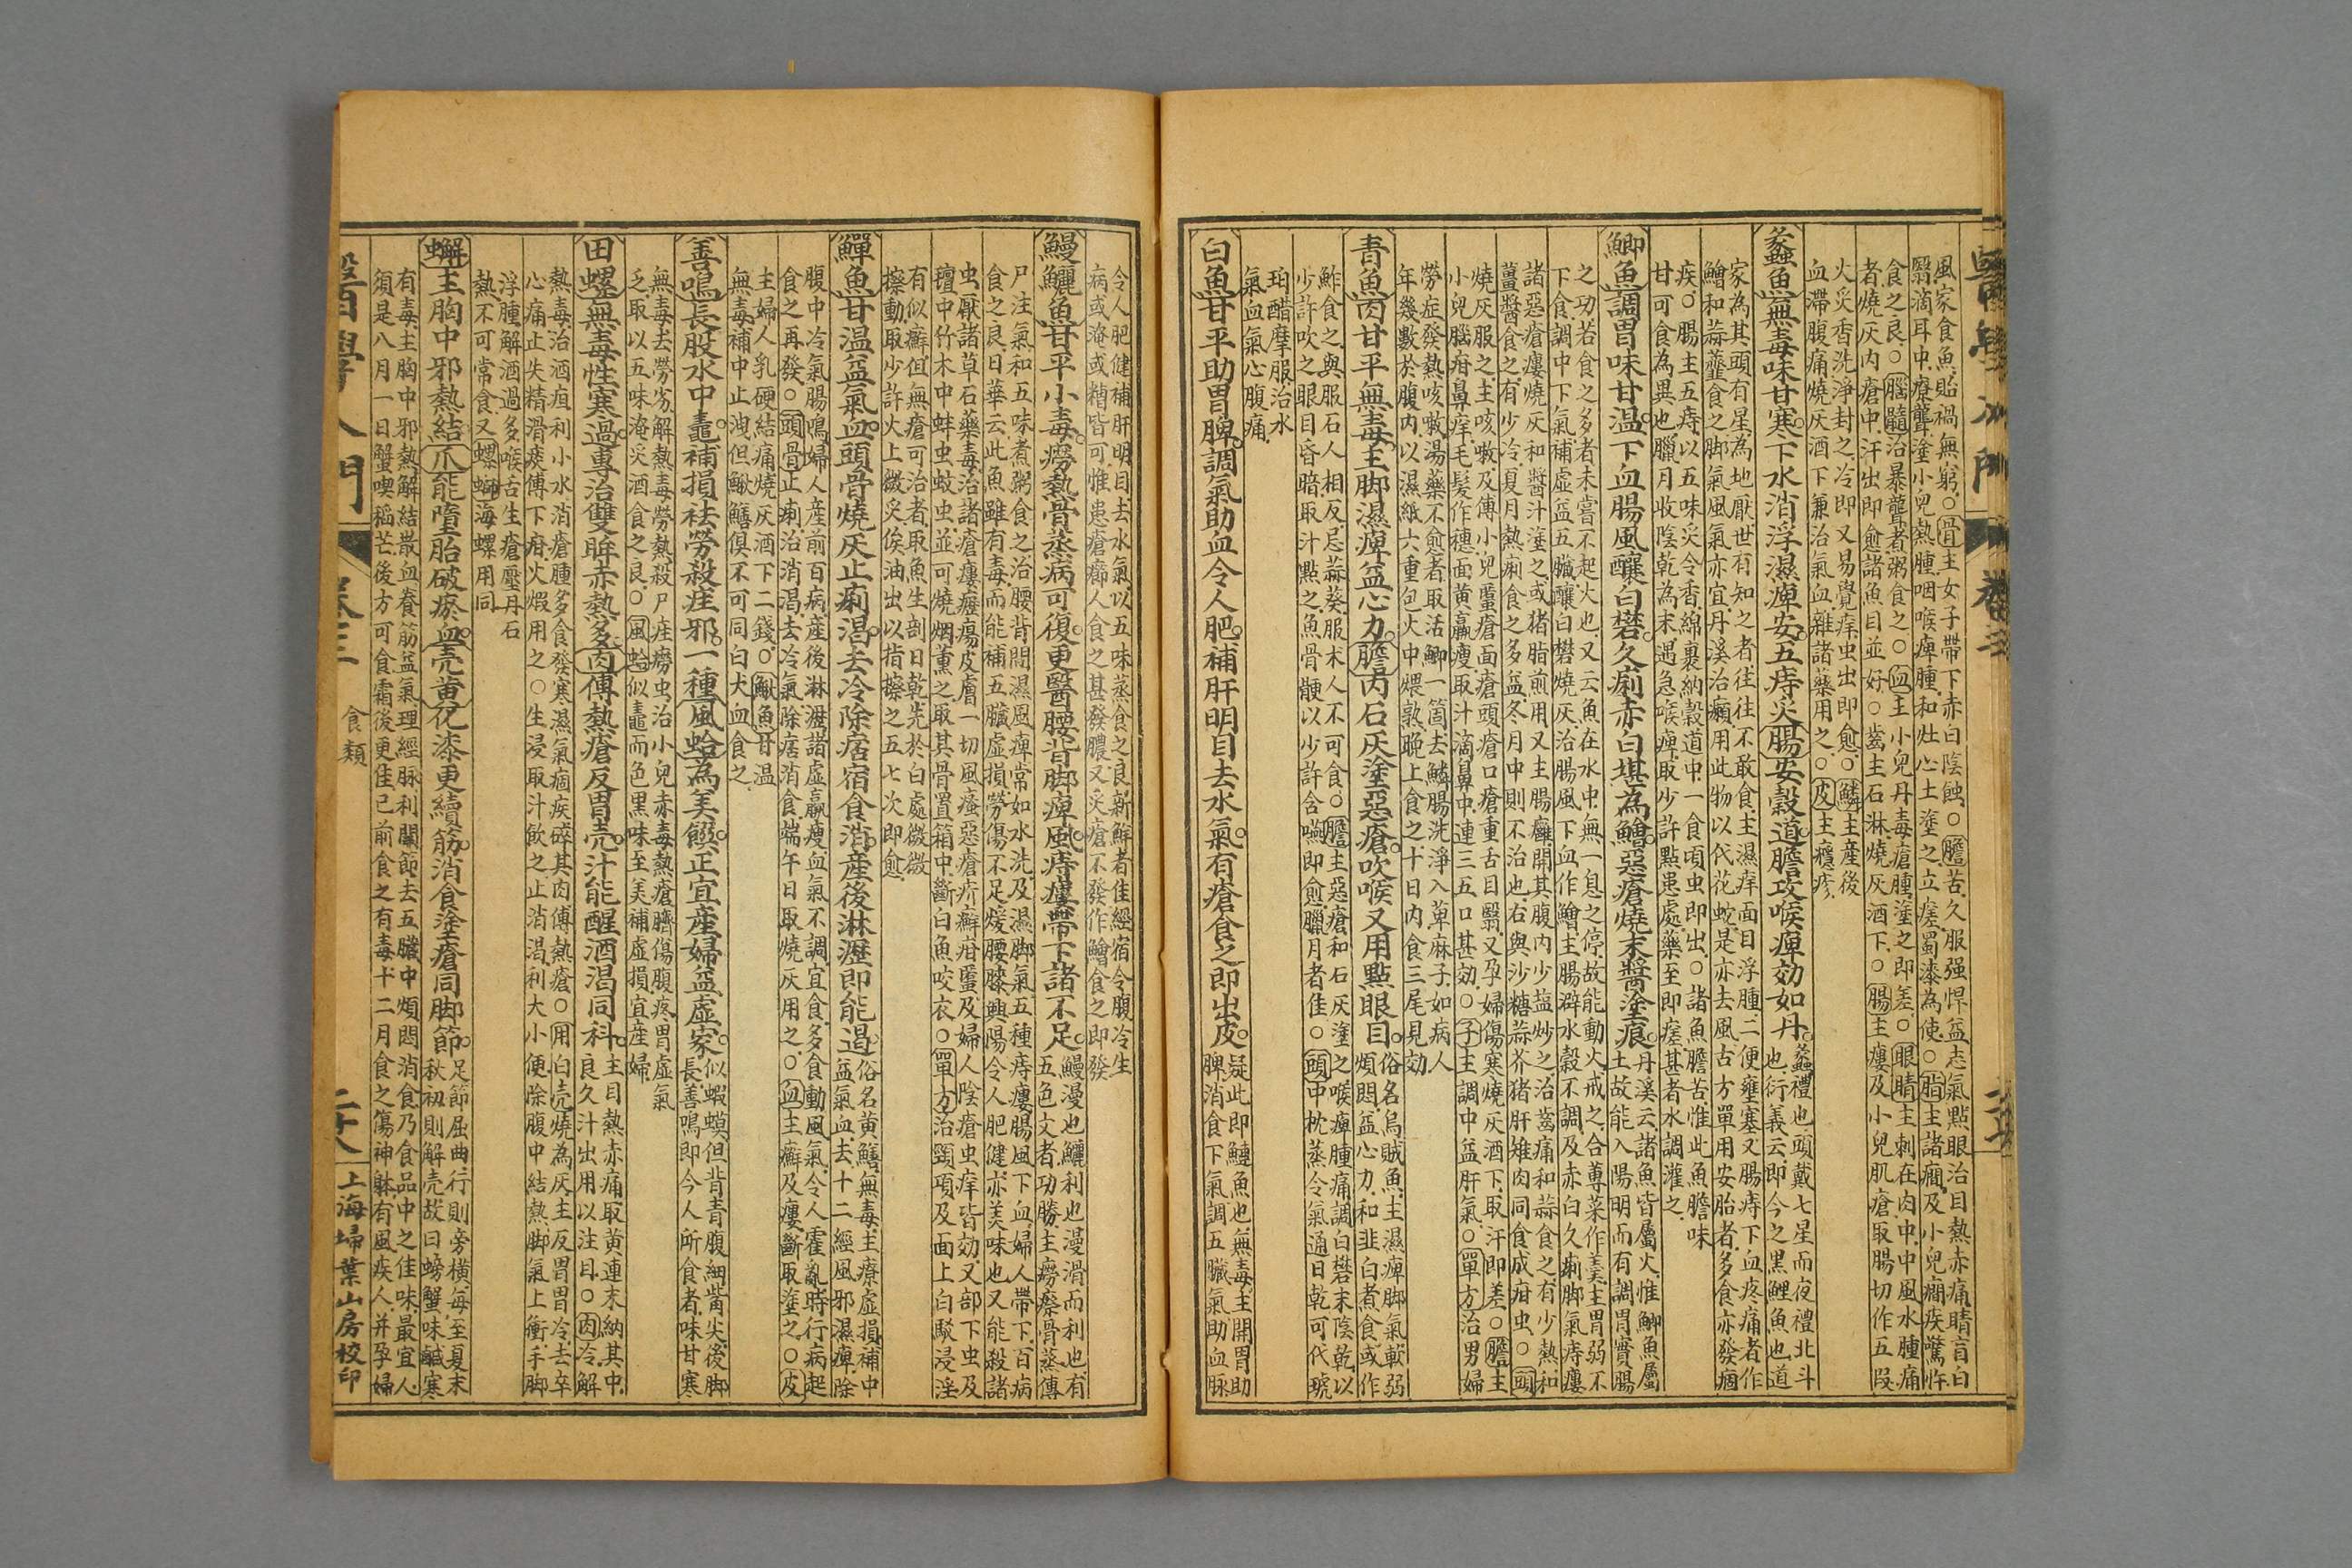 風家食魚貽禍無窮○骨主女子帶下赤白陰蝕○膽苦久服强悍益志氣點眼治目熱赤痛睛盲白
翳滴耳中療聾塗小兒熱腫咽喉痺腫和灶心土塗之立瘥蜀漆為使○脂主諸癎及小兒癎疾驚忤
食之良○腦髓治暴聾者粥食之○血主小兒丹毒瘡腫塗之即差○眼睛主刺在肉中中風水腫痛
者燒灰内瘡中汗出即愈諸魚目並好○齒主石淋燒灰酒下○腸主瘻及小兒肌瘡取腸切作五段
火炙香洗淨封之冷即又易覺痒虫出即愈○鱗主產後
血滯腹痛燒灰酒下兼治氣血雜諸藥用之○皮主癮疹
蠡魚無毒味甘寒下水消浮濕痺安五痔炙腸安穀道膽攻喉痺効如丹
蠡禮也頭戴七星而夜禮北斗
也衍義云即今之黑鯉魚也道
家為其頭有星為地厭世有知之者往往不敢食主濕痒面目浮腫二便壅塞又腸痔下血疼痛者作
鱠和蒜虀食之脚氣風氣亦宜丹溪治癩用此物以代花蛇是亦去風古方單用安胎者多食亦發痼
疾○腸主五痔以五味炙令香綿裹納穀道中一食頃虫即出○諸魚膽苦惟此魚膽味
甘可食為異也臘月收陰乾為末遇急喉痺取少許點患處藥至即瘥甚者水調灌之
鯽魚調胃味甘温下血腸風釀白礬久痢赤白堪為鱠惡瘡燒末醬塗痕
丹溪云諸魚皆屬火惟鯽魚屬
土故能入陽明而有調胃實腸
之功若食之多者未嘗不起火也又云魚在水中無一息之停故能動火戒之合蓴菜作羹主胃弱不
下食調中下氣補虛益五臟釀白礬燒灰治腸風下血作鱠主腸澼水穀不調及赤白久痢脚氣痔瘻
諸惡瘡瘻燒灰和醬汁塗之或猪脂煎用又主腸癰開其腹内少塩炒之治齒痛和蒜食之有少熱和
薑醬食之有少冷夏月熱痢食之多益冬月中則不治也石與沙糖蒜芥猪肝雉肉同食成疳虫○頭
燒灰服之主咳嗽及傅小兒䘌瘡面瘡頭瘡口瘡重舌目翳又孕婦傷寒燒灰酒下取汗即差○膽主
小兒腦疳鼻痒毛髮作穗面黃羸瘦取汁滴鼻中連三五口甚効○子主調中益肝氣○單方治男婦
勞症發熱咳嗽湯藥不愈者取活鯽一箇去鱗腸洗淨入萆麻子如病人
年幾數於腹内以濕紙六重包火中煨熟晚上食之十日内食三尾見効
青魚肉甘平無毒主脚濕痺益心力膽丙石灰塗惡瘡吹喉又用點眼目
俗名烏賊魚主濕痺脚氣軟弱
煩悶益心力和韭白煮食或作
鮓食之與服石人相反忌蒜葵服术人不可食○膽主惡瘡和石灰塗之喉痺腫痛調白礬末陰乾以
少許吹之眼目昏暗取汁點之魚骨骾以少許含嚥即愈臘月者佳○頭中枕蒸令氣通日乾可代琥
珀醋摩服治水
氣血氣心腹痛
白魚甘平助胃脾調氣助血令人肥補肝明目去水氣有瘡食之即出皮
疑此即鰱魚也無毒主開胃助
脾消食下氣調五臟氣助血脉
令人肥健補肝明目去水氣以五味蒸食之良新鮮者佳經宿令腹冷生
病或淹或糟皆可惟患瘡癤人食之甚發膿又炙瘡不發作鱠食之即發
鰻鱺魚甘平小毒癆熱骨蒸病可復更醫腰背脚痺風痔瘻帶下諸不足
鰻漫也鱺利也漫滑而利也有
五色文者功勝主癆瘵骨蒸傳
尸注氣和五味煮粥食之治腰背間濕風痺常如水洗及濕脚氣五種痔瘻腸風下血婦人帶下百病
食之良日華云此魚雖有毒而能補五臟虛損勞傷不足煖腰膝興陽令人肥健亦美味也又能殺諸
虫厭諸草石藥毒治諸瘡瘻癧瘍皮膚一切風瘙惡瘡疥癬疳䘌及婦人陰瘡虫痒皆効又部下虫及
氊中竹木中蚌虫蚊虫並可燒烟薰之取其骨置箱中斷白魚咬衣○單方治頸項及面上白駁浸淫
有似癬但無瘡可治者取魚生剖日乾先於白處微微
擦動取少許火上微炙俟油出以指擦之五七次即愈
鱓魚甘温益氣血頭骨燒灰止痢渴去冷除痞宿食消產後淋瀝即能遏
俗名黃鱔無毒主療虛損補中
益氣血去十二經風邪濕痺除
腹中冷氣腸鳴婦人產前百病產後淋瀝諸虛羸瘦血氣不調宜食多食動風氣令人霍亂時行病起
食之再發○頭骨止痢治消渴去冷氣除痞消食端午日取燒灰用之○血主癬及瘻斷取塗之○皮
主婦人乳硬結痛燒灰酒下二錢○鰍魚甘温
無毒補中止洩但鰍鱔俱不可同白犬血食之
善鳴長股水中䵷補損袪勞殺疰邪一種風蛤為美饌正宜產婦益虛家
似蝦蟆但背青腹細觜尖後脚
長善鳴即今人所食者味甘寒
無毒去勞劣解熱毒勞熱殺尸疰癆虫治小兒赤毒熱瘡臍傷腹疼胃虛氣
乏取以五味淹炙酒食之良○風蛤似䵷而色黑味至美補虛損宜產婦
田螺無毒性寒過專治雙眸赤熱多肉傅熱瘡反胃壳汁能醒酒渴同科
主目熱赤痛取黃連末納其中
良久汁出用以注目○肉冷解
熱毒治酒疸利小水消瘡腫多食發寒濕氣痼疾碎其肉傅熱瘡○用白壳燒為灰主反胃胃冷去卒
心痛止失精滑痰傅下疳火煆用之○生浸取汁飲之止消渴利大小便除腹中結熱脚氣上衝手脚
浮腫解酒過多喉舌生瘡壓丹石
熱不可常食又螺螄海螺用同
蠏主胸中邪熱結爪能墮胎破瘀血壳黄化漆更續筋消食塗瘡同脚節
足節屈曲行則旁橫每至夏末
秋初則解壳故曰螃蟹味鹹寒
有毒主胸中邪熱解結散血養筋益氣理經脉利關節去五臟中煩悶消食乃食品中之佳味最宜人
須是八月一日蟹喫稻芒後方可食霜後更佳已前食之有毒十二月食之傷神躰有風疾人并孕婦
醫學入門 卷三 食類 二十八 上海埽葉山房校印